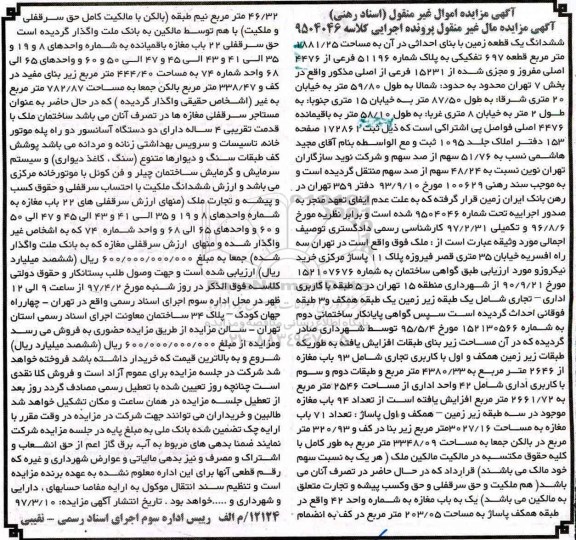 آگهی مزایده اموال غیر منقول (اسناد رهنی)
آگهی مزایده مال غیر منقول پرونده اجرایی کلاسه ۹۵۰۴۰۴۶
ششدانگ یک قطعه زمین با بنای احداثی در آن به مساحت ۱۸۸۱/۲۵
متر مربع قطعه ۶۹۷ تفکیکی به پلاک شماره ۵۱۱۹۶ فرعی از ۴۴۷۶
اصلی مفروز و مجزی شده از ۱۵۲۳۱ فرعی از اصلی مذکور واقع در
بخش ۷ تهران محدود به حدود: شمالا به طول ۵۹/۸۰ متر به خیابان
۲۰ متری شرقا: به طول ۸۷/۵۰ متر به خیابان ۱۵ متری جنوبا: به
طول ۲ متر به خیابان ۸ متری غربا: به طول ۵۸/۱۰ متر به باقیمانده
۴۴۷۶ اصلی فواصل پی اشتراکی است که ذیل ثبت ۱۷۲۸۶۲ صفحه
۱۵۳ دفتر املاک جلد ۱۰۹۵ ثبت و مع الواسطه بنام آقای مجید
هاشمی نسب به ۵۱/۷۶ سهم از صد سهم و شرکت نوید سازگاران
تهران نوین نسبت به ۴۸/۲۴ سهم از صد سهم منتقل گردیده است و
به موجب سند رهنی ۱۰۰۶۲۹ مورخ ۹۳/۹/۱۰ دفتر ۳۵۹ تهران در
رهن بانک ایران زمین قرار گرفته که به علت عدم ایفای تعهد منجر به
صدور اجراییه تحت شماره ۹۵۰۴۰۴۶ شده است و برابر نظریه مورخ
۹۶/۸/۶ و تکمیلی ۹۷/۲/۳۱ کارشناسی رسمی دادگستری توصیف
اجمالی مورد وثیقه عبارت است از : ملک فوق واقع است در تهران سه
راه افسریه خیابان ۳۵ متری قصر فیروزه پلاک ۱۱ پاساژ مرکزی خرید
نیکروز و مورد ارزیابی طبق گواهی ساختمان به شماره ۱۵۲۱۰۷۶۷۶
مورخ ۹۰/۹/۲۱ از شهرداری منطقه ۱۵ تهران در ۵ طبقه با کاربری
اداری – تجاری شامل یک طبقه زیر زمین یک طبقه همکف و ۳ طبقه
فوقانی احداث گردیده است سپس گواهی پایانکار ساختمانی دوم
به شماره ۱۵۲۱۳۰۵۶۶ مورخ ۹۵/۵/۴ توسط شهرداری صادر
گردیده که در آن مساحت زیر بنای طبقات افزایش یافته به طوریکه
طبقات زیر زمین همکف و اول با کاربری تجاری شامل ۹۳ باب مغازه
از ۲۶۴۶ متر مربع به ۴۳۸۰/۳۳ متر مربع و طبقات دوم و سوم
با کاربری اداری شامل ۴۲ واحد اداری از مساحت ۲۵۴۶ متر مربع
به ۲۶۶۱/۷۲ متر مربع افزایش یافته است از تعداد ۹۴ باب مغازه
موجود در سه طبقه زیر زمین – همکف و اول پاساژ : تعداد ۷۱ باب
مغازه به مساحت ۳۰۲۷/۱۶ متر مربع زیر بنا در کف و ۳۲۰/۹۳ متر
مربع در بالکن جمعا به مساحت ۳۳۴۸/۰۹ متر مربع به طور کامل با
کلیه حقوق مکتسبه در مالکیت مالکین ملک ( هر یک به نسبت سهم
خود مالک می باشند) قرار دارد که در حال حاضر در تصرف آنان می
باشد( هم ملکیت و حق سرقفلی و حق وکسب پیشه و تجارت متعلق
به مالکین می باشد) یک به باب مغازه به شماره واحد ۴۲ واقع در
طبقه همکف پاساژ به مساحت ۲۰۳/۰۵ متر مربع در کف به انضمام
۴۶/۳۲ متر مربع نیم طبقه (بالکن با مالکیت کامل حق سرقفلی
و ملکیت) با هم توسط مالکین به بانک ملت واگذار گردیده است
حق سرقفلی ۲۲ باب مغازه باقیمانده به شماره واحدهای ۸ و ۱۹ و
۳۵ الی ۴۱ و ۴۳ الی ۴۵ و ۴۷ الی ۵۰ و ۶۰ و واحدهای ۶۵ الی
۶۸ واحد شماره ۷۴ به مساحت ۴۴۴/۴۰ متر مربع زیر بنای مفید در
کف و ۳۳۸/۴۷ متر مربع بالکن جمعا به مساحت ۷۸۲/۸۷ متر مربع
به غیر (اشخاص حقیقی واگذار گردیده ) که در حال حاضر به عنوان
مستاجر سرقفلی مغازه ها در تصرف آنان می باشد ساختمان ملک با
قدمت تقریبی ۴ ساله دارای دو دستگاه آسانسور دو راه پله موتور
خانه، تاسیسات و سرویس بهداشتی زنانه و مردانه می باشد پوشش
کف طبقات سنگ و دیوارها متنوع (سنگ ، کاغذ دیواری) و سیستم
سرمایش و گرمایش ساختمان چیلر و فن کوئل با موتورخانه مرکزی
می باشد و ارزش ششدانگ ملکیت با احتساب سرقفلی و حقوق کسب
و پیشه و تجارت ملک (منهای ارزش سرقفلی های ۲۲ باب مغازه به
شماره واحدهای ۸ و ۱۹ و ۳۵ الی ۴۱ و ۴۳ الی ۴۵ و ۴۷ الی ۵۰
و ۶۰ و واحدهای ۶۵ الی ۶۸ و واحد شماره ۷۴ که به اشخاص غیر
واگذار شده و منهای ارزش سرقفلی مغازه که به بانک ملت واگذار
شده) جمعا به مبلغ ۶۰۰/۰۰۰/۰۰۰/۰۰۰ ریال (ششصد میلیارد
ریال) ارزیابی شده است و جهت وصول طلب بستانکار و حقوق دولتی
کلاسه فوق الذکر در روز شنبه مورخ ۹۷/۴/۲ از ساعت ۹ الی ۱۲
ظهر در محل اداره سوم اجرای اسناد رسمی واقع در تهران – چهارراه
جهان کودک – پلاک ۳۴ ساختمان معاونت اجرای اسناد رسمی استان
تهران – سالن مزایده از طریق مزایده حضوری به فروش می رسد
و مزایده از مبلغ ۶۰۰/۰۰۰/۰۰۰/۰۰۰ ریال (ششصد میلیارد ریال)
شروع و به بالاترین قیمت که خریدار داشته باشد فروخته خواهد
شد شرکت در جلسه مزایده برای عموم آزاد است و فروش کلا نقدی
است چنانچه روز تعیین شده با تعطیل رسمی مصادف گردد روز بعد
از تعطیل جلسه مزایده در همان ساعت و مکان تشکیل خواهد شد
طالبین و خریداران می توانند جهت شرکت در مزایده در وقت مقرر با
ارایه چک تضمین شده بانک ملی به مبلغ پایه در جلسه مزایده شرکت
نمایند ضمنا بدهی های مربوط به آب، برق گاز اعم از حق انشعاب و
اشتراک و مصرف و نیز بدهی مالیاتی و عوارض شهرداری و غیره که
رقم قطعی آنها برای این اداره معلوم نشده به عهده برنده مزایده
است و تنظیم سند انتقال موکول به ارایه مفاصا حسابهای ، دارایی
و شهرداری و .....خواهد بود . تاریخ انتشار آگهی مزایده: ۹۷/۳/۱۰
۱۲۱۲۴/م الف رییس اداره سوم اجرای اسناد رسمی – نقیبی